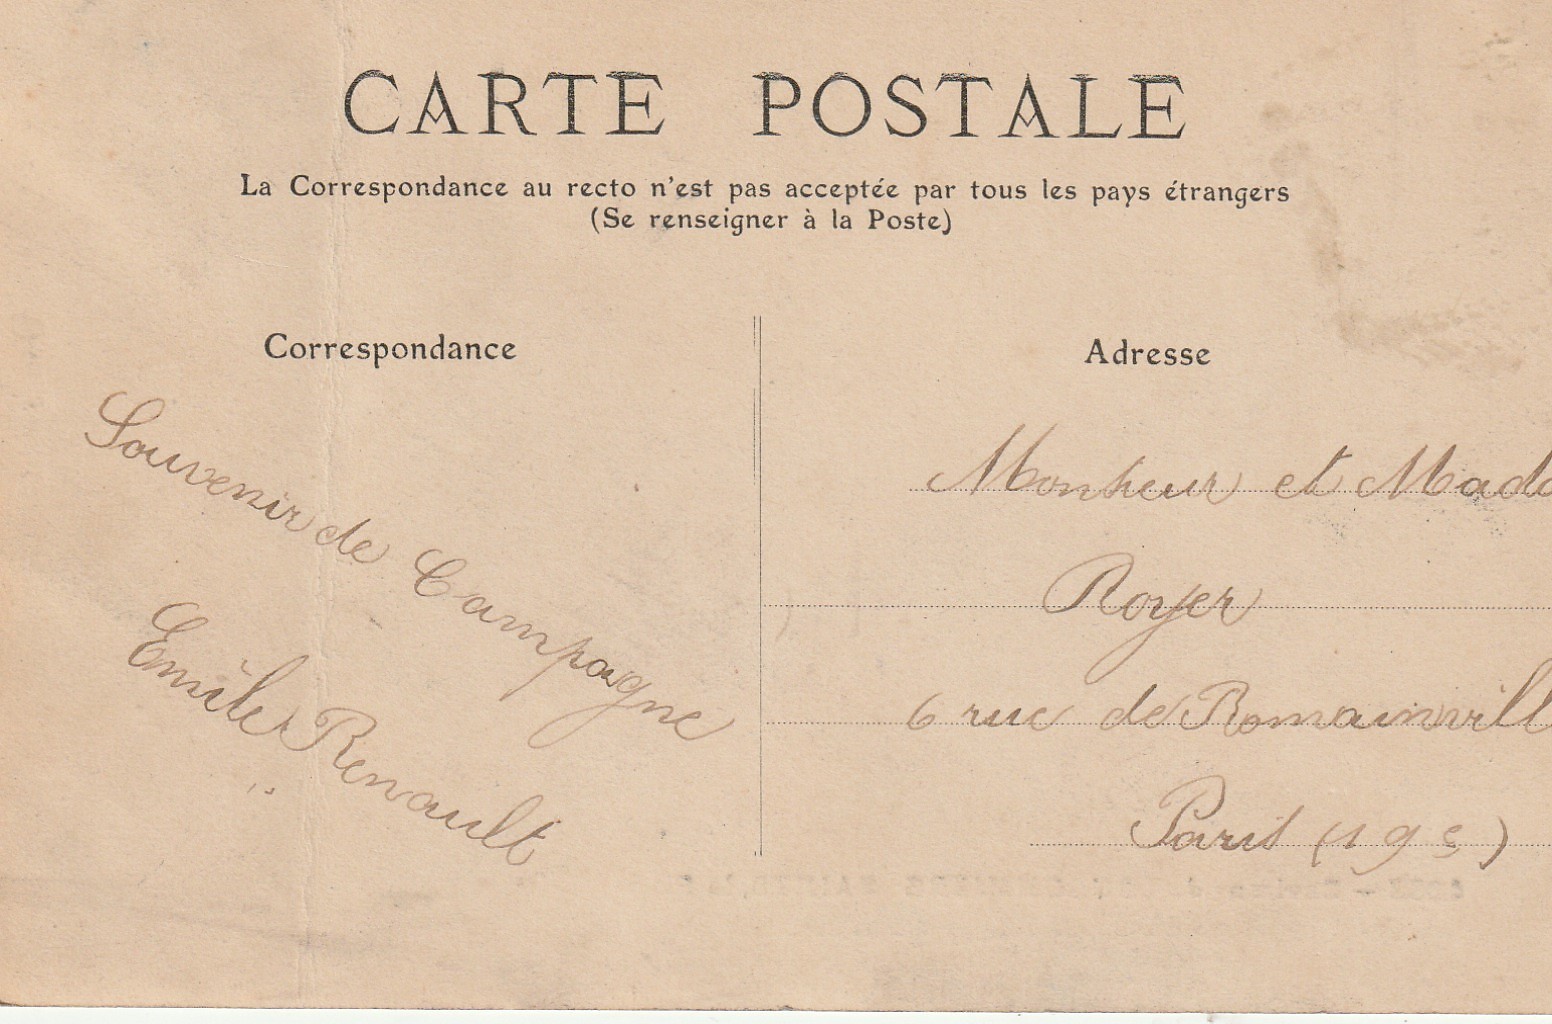 CARTE POSTALE
La Correspondance au recto n'est pas acceptée par tous les pays étrangers
(Se renseigner à la Poste)
Correspondance
Souvenir de Campagne
Emile Renault
Adresse
Monsieur et Mada
Royer
6 rue de Romainvill
Paris (19e)